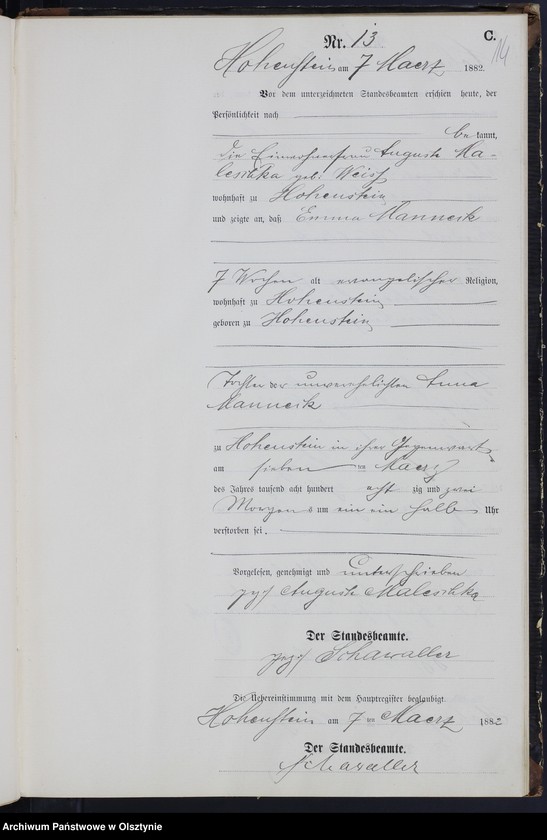 Nr. 13
C.
14
Hohenstein am 7 Maerz 1882.
Vor dem unterzeichneten Standesbeamten erschien heute, der
Persönlichkeit nach
be kannt,
die Einwohnerfrau Auguste Ma-
leschka geb. Weiss
wohnhaft zu Hohenstein
und zeigte an, daß Emma Manneck
7 Wochen alt evangelischer Religion,
wohnhaft zu Hohenstein
geboren zu Hohenstein
Tochter der unverehelichten Anna
Manneck
zu Hohenstein in ihrer Gegenwart
am sieben ten Maerz
des Jahres tausend acht hundert acht zig und zwei
Morgens um ein ein halb Uhr
verstorben sei.
Vorgelesen, genehmigt und unterschrieben
gez. Auguste Maleschka
Der Standesbeamte.
gez. Schawaller
Die Uebereinstimmung mit dem Hauptregister beglaubigt.
Hohenstein am 7 ten Maerz 1882
Der Standesbeamte.
Schawaller
Archiwum Państwowe w Olsztynie